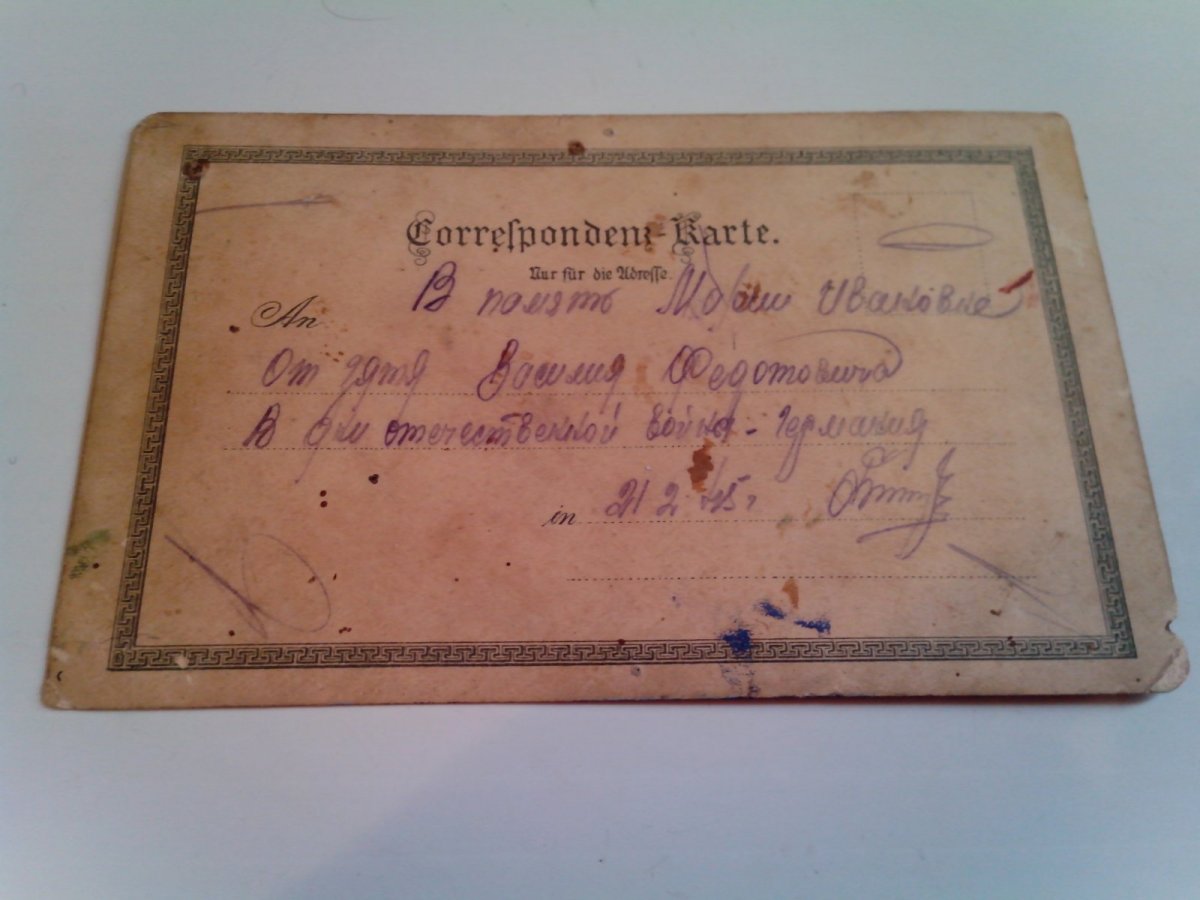 Correſpondenz-Karte.
Nur für die Adreſſe.
An В память Марии Ивановне
От зятя Василия Федотовича
В дни отечественной война - Германия
in 21 2 45 г